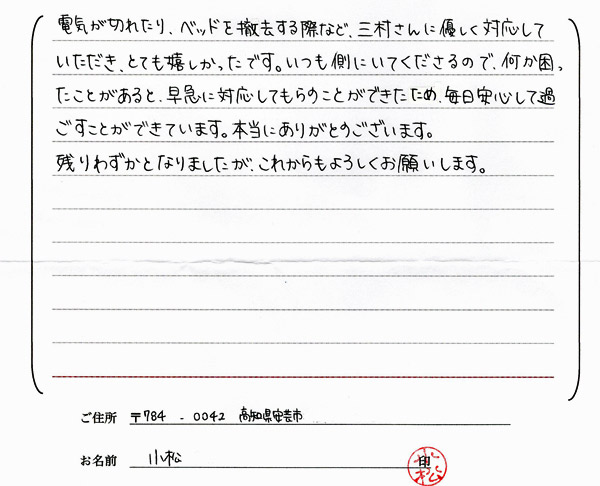 電気が切れたり、ベッドを撤去する際など、三村さんに優しく対応して
いただき、とても嬉しかったです。いつも側にいてくださるので、何か困っ
たことがあると、早急に対応してもらうことができたため、毎日安心して過
ごすことができています。本当にありがとうございます。
残りわずかとなりましたが、これからもよろしくお願いします。
ご住所 〒784 - 0042 高知県安芸市
お名前 小松 印 小松